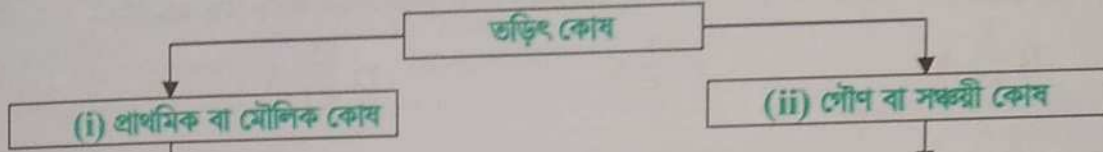 তড়িৎ কোষ
(i) প্রাথমিক বা মৌলিক কোষ
(ii) গৌণ বা সঞ্চয়ী কোষ